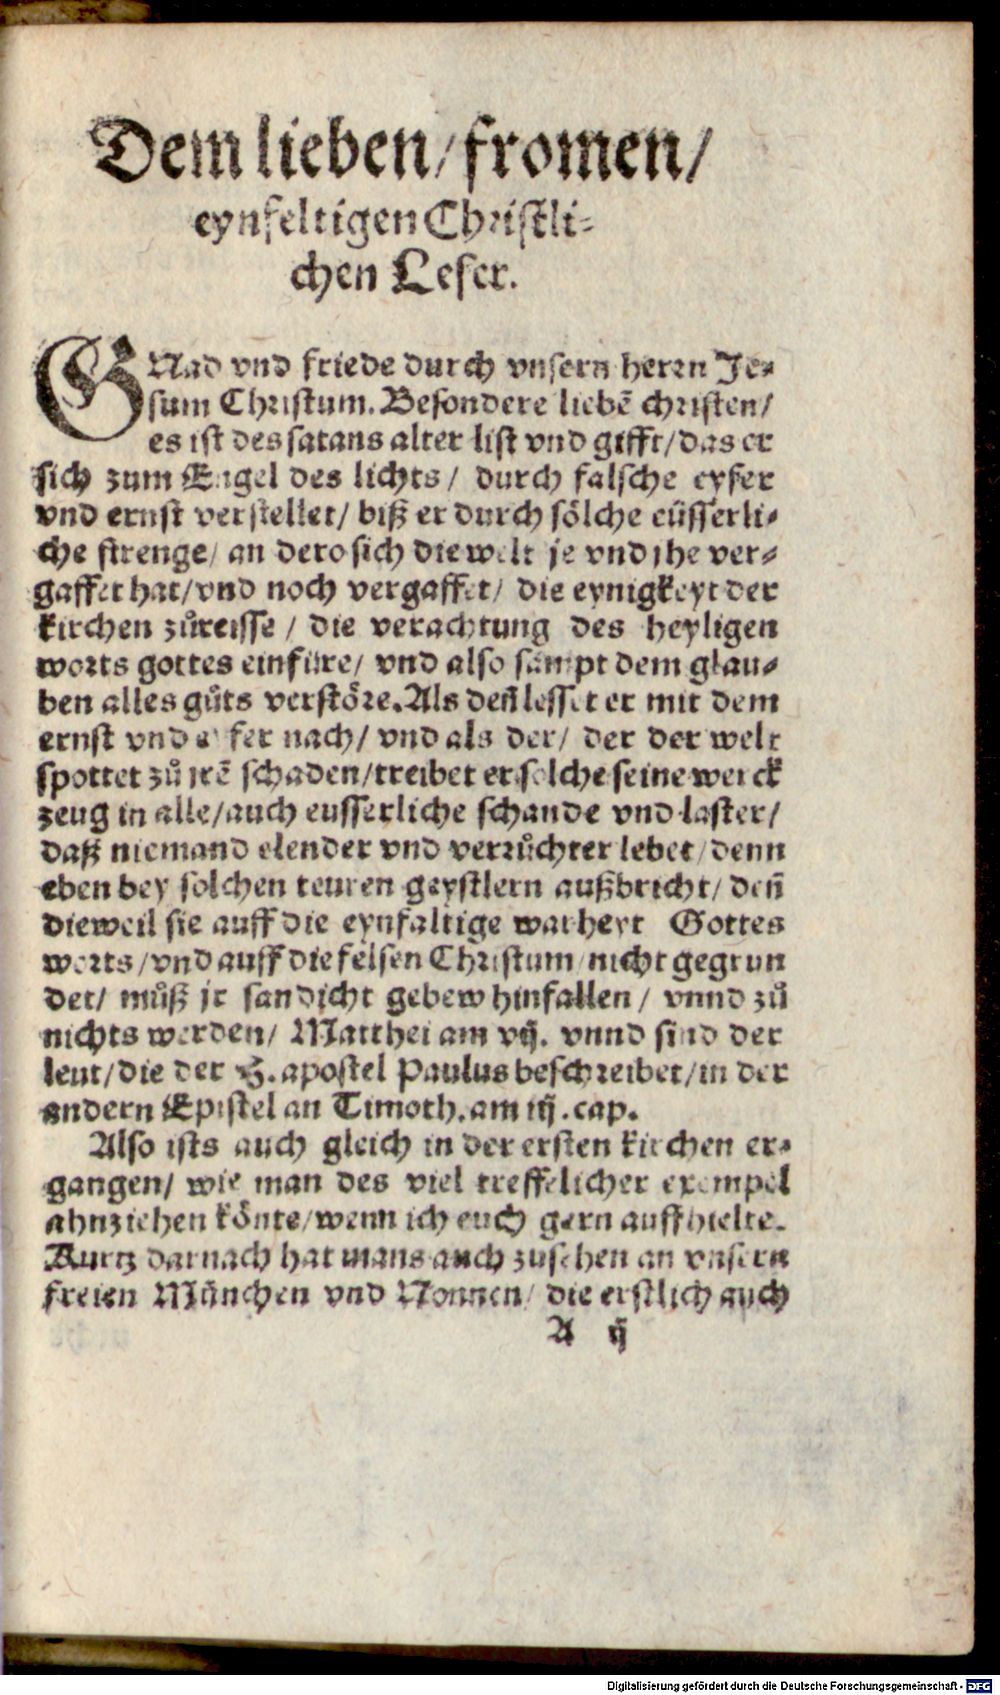 Dem lieben/ fromen/
eynfeltigen Christli-
chen Leser.
GNad vnd friede durch vnsern herrn Je-
sum Christum. Besondere liebē christen/
es ist des satans alter list vnd gifft/ das er
sich zum Engel des lichts/ durch falsche eyfer
vnd ernst verstellet/ biß er durch sölche eüsserli-
che strenge/ an dero sich die welt je vnd jhe ver-
gaffet hat/ vnd noch vergaffet/ die eynigkeyt der
kirchen zůreisse/ die verachtung des heyligen
worts gottes einfüre/ vnd also sampt dem glau-
ben alles gůts verstöre. Als deñ lesset er mit dem
ernst vnd eyfer nach/ vnd als der/ der der welt
spottet zů jrē schaden/ treibet er solche seine werck
zeug in alle/ auch eusserliche schande vnd laster/
daß niemand elender vnd verrůchter lebet/ denn
eben bey solchen teuren geystlern außbricht/ deñ
dieweil sie auff die eynfaltige warheyt Gottes
worts/ vnd auff die felsen Christum nicht gegrun
det/ můß jr sandicht gebew hinfallen/ vnnd zů
nichts werden/ Matthei am vij. vnnd sind der
leut/ die der H. apostel Paulus beschreibet/ in der
andern Epistel an Timoth. am iij. cap.
Also ists auch gleich in der ersten kirchen er-
gangen/ wie man des viel treffelicher exempel
ahnziehen könte/ wenn ich euch gern auffhielte.
Kurtz darnach hat mans auch zusehen an vnsern
freien München vnd Nonnen/ die erstlich auch
A ij
Digitalisierung gefördert durch die Deutsche Forschungsgemeinschaft - DFG